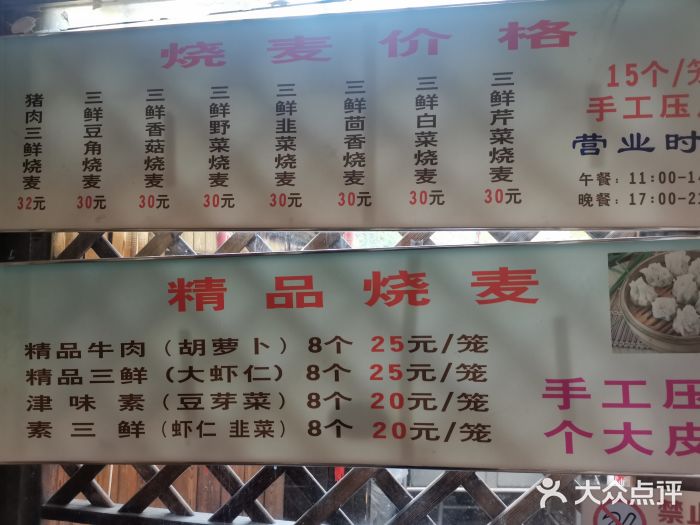 烧麦价格
猪肉三鲜烧麦 32元
三鲜豆角烧麦 30元
三鲜香菇烧麦 30元
三鲜野菜烧麦 30元
三鲜韭菜烧麦 30元
三鲜茴香烧麦 30元
三鲜白菜烧麦 30元
三鲜芹菜烧麦 30元
15个/笼
手工压
营业时
午餐：11:00-14
晚餐：17:00-21
精品烧麦
精品牛肉（胡萝卜）8个 25元/笼
精品三鲜（大虾仁）8个 25元/笼
津味素（豆芽菜）8个 20元/笼
素三鲜（虾仁 韭菜）8个 20元/笼
手工压
个大皮
禁
大众点评